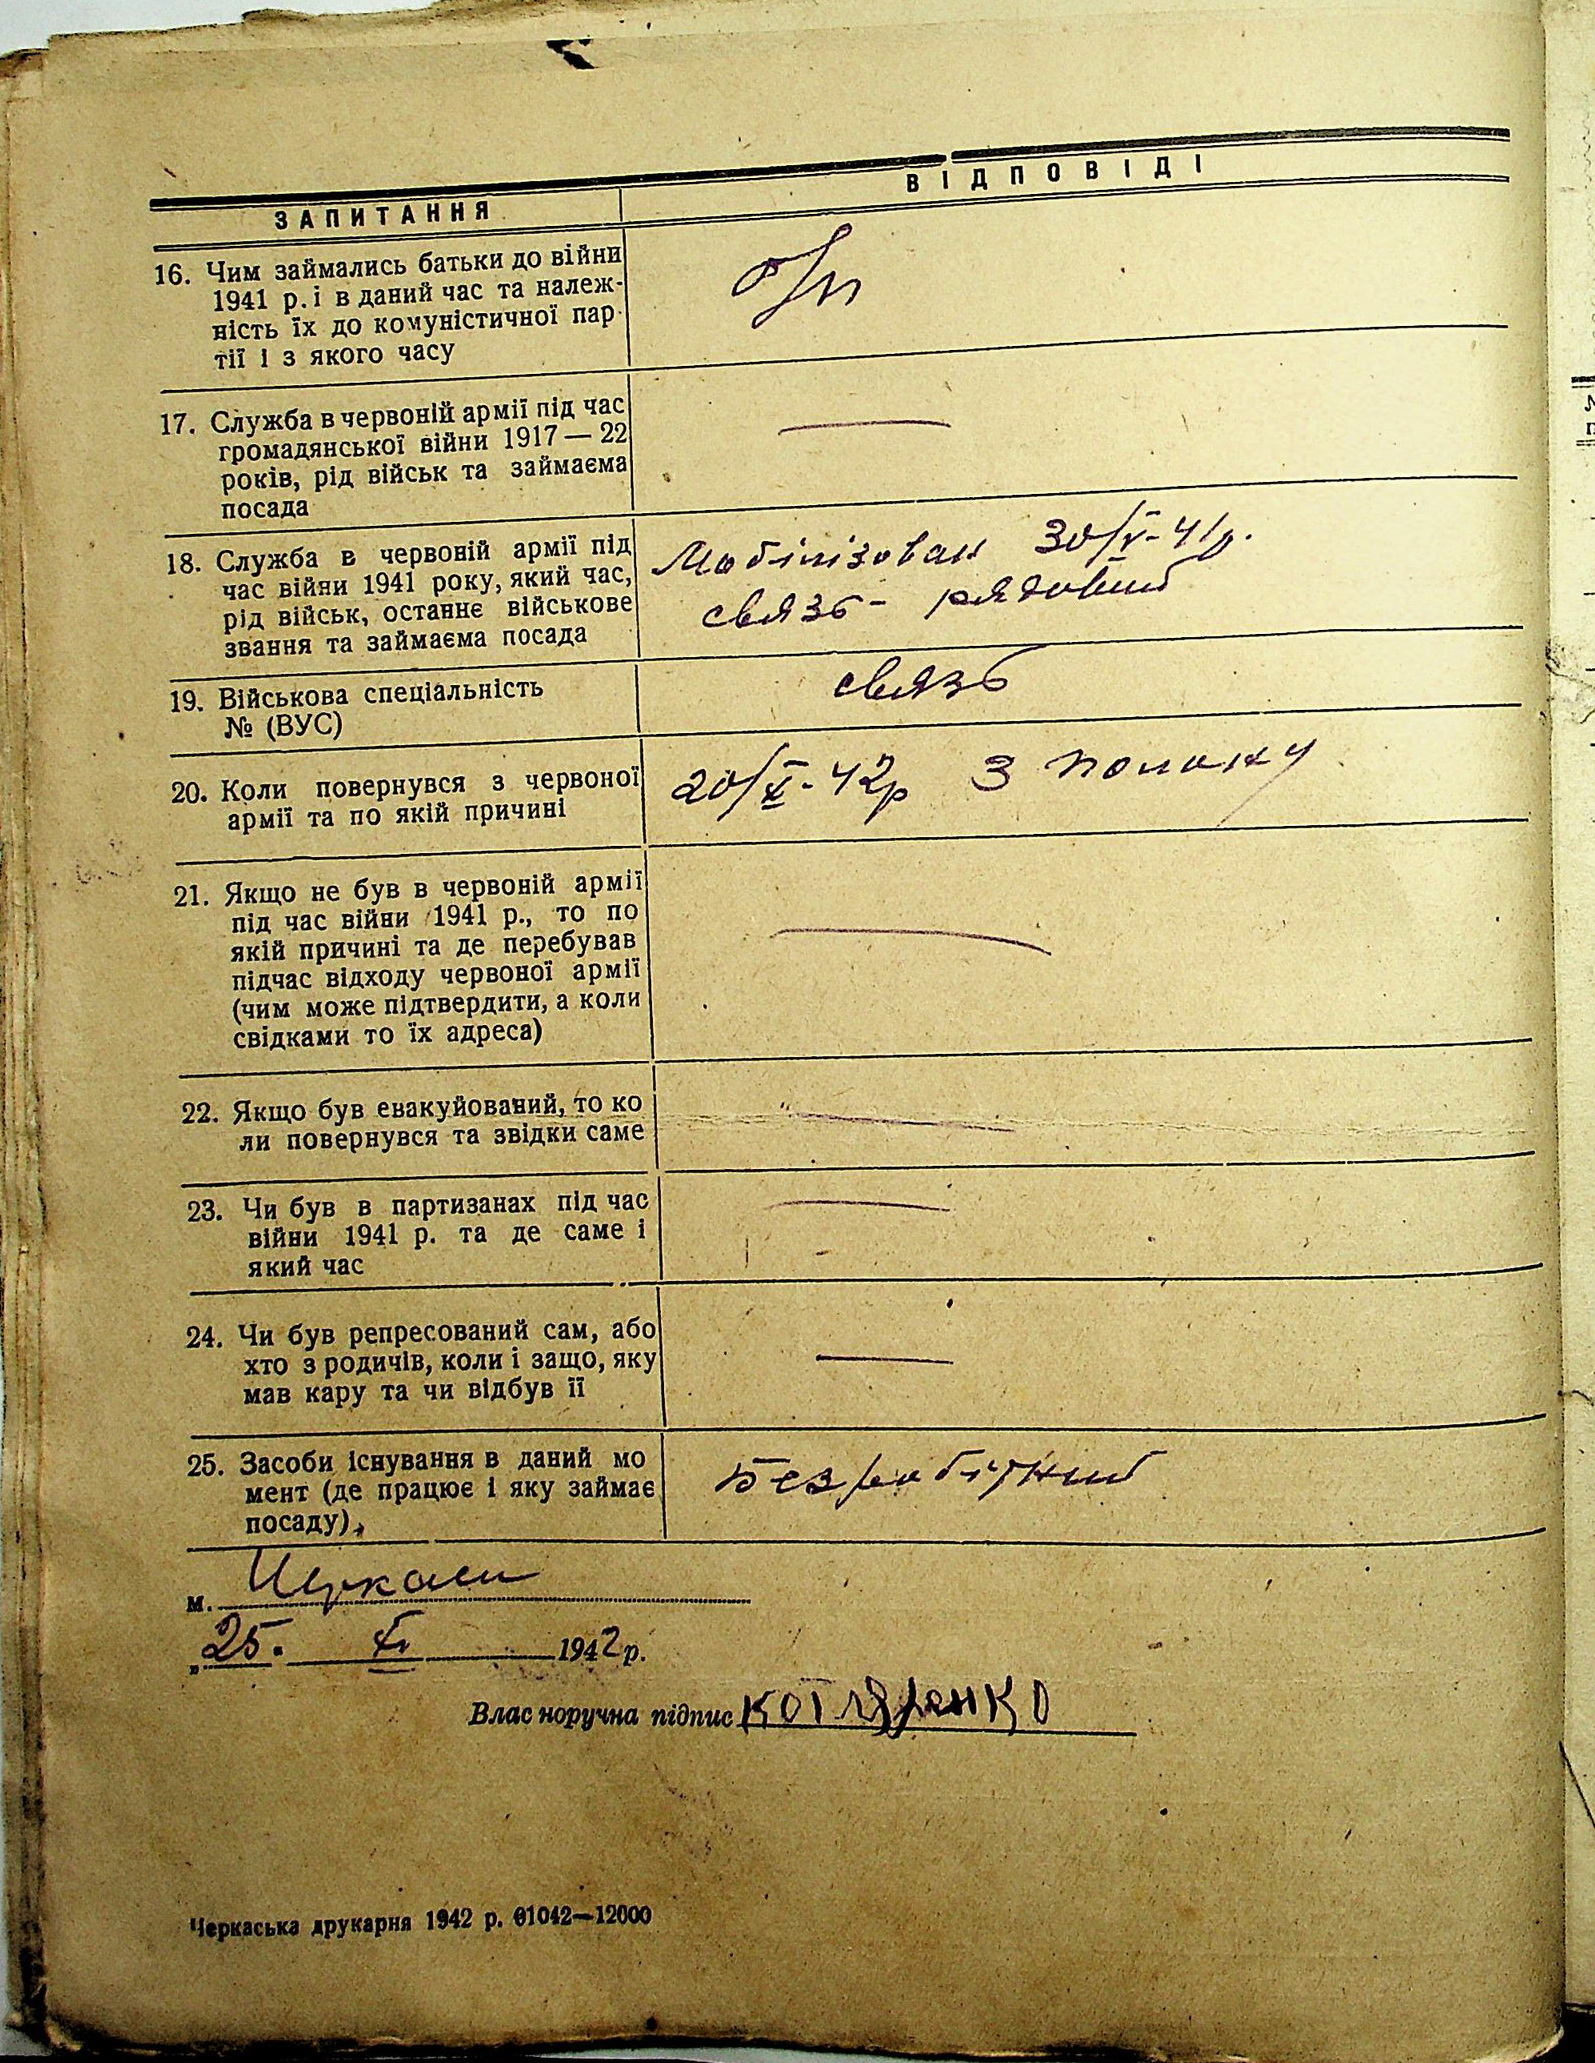 ЗАПИТАННЯ
ВІДПОВІДІ
16. Чим займались батьки до війни
1941 р. і в даний час та належ-
ність їх до комуністичної пар-
тії і з якого часу
б/п
17. Служба в червоній армії під час
громадянської війни 1917 — 22
років, рід військ та займаєма
посада
—
18. Служба в червоній армії під
час війни 1941 року, який час,
рід військ, останнє військове
звання та займаєма посада
Мобілізован 30/V-41р.
связь - рядовий
19. Військова спеціальність
№ (ВУС)
связь
20. Коли повернувся з червоної
армії та по якій причині
20/X-42р З полону
21. Якщо не був в червоній армії
під час війни 1941 р., то по
якій причині та де перебував
підчас відходу червоної армії
(чим може підтвердити, а коли
свідками то їх адреса)
—
22. Якщо був евакуйований, то ко
ли повернувся та звідки саме
—
23. Чи був в партизанах під час
війни 1941 р. та де саме і
який час
—
24. Чи був репресований сам, або
хто з родичів, коли і защо, яку
мав кару та чи відбув її
—
25. Засоби існування в даний мо
мент (де працює і яку займає
посаду)
Безробітний
м. Черкаси
„25. 1942 р.
Влас норучна підпис Котляренко
Черкаська друкарня 1942 р. 01042—12000